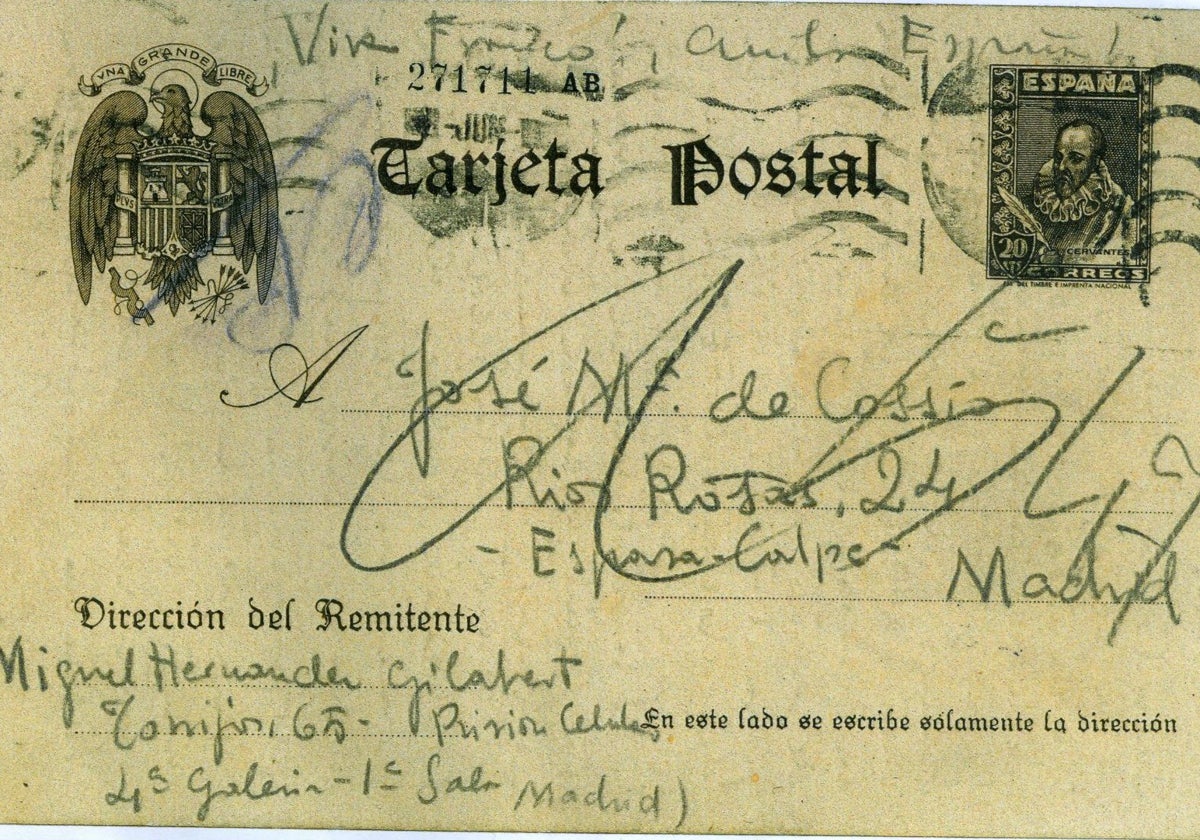 ¡Viva Franco! ¡Arriba España!
UNA GRANDE LIBRE
271711 AB
ESPAÑA
JUN
Tarjeta Postal
PLVS
20
CERVANTES
CORREOS
DEL TIMBRE E IMPRENTA NACIONAL
A José Mª. de Cossío
Ríos Rosas, 24
- Espasa-Calpe -
Madrid
Dirección del Remitente
Miguel Hernández Gilabert
Torrijos, 65 - Prisión Celular
En este lado se escribe solamente la dirección
4ª Galería - 1ª Sala Madrid)